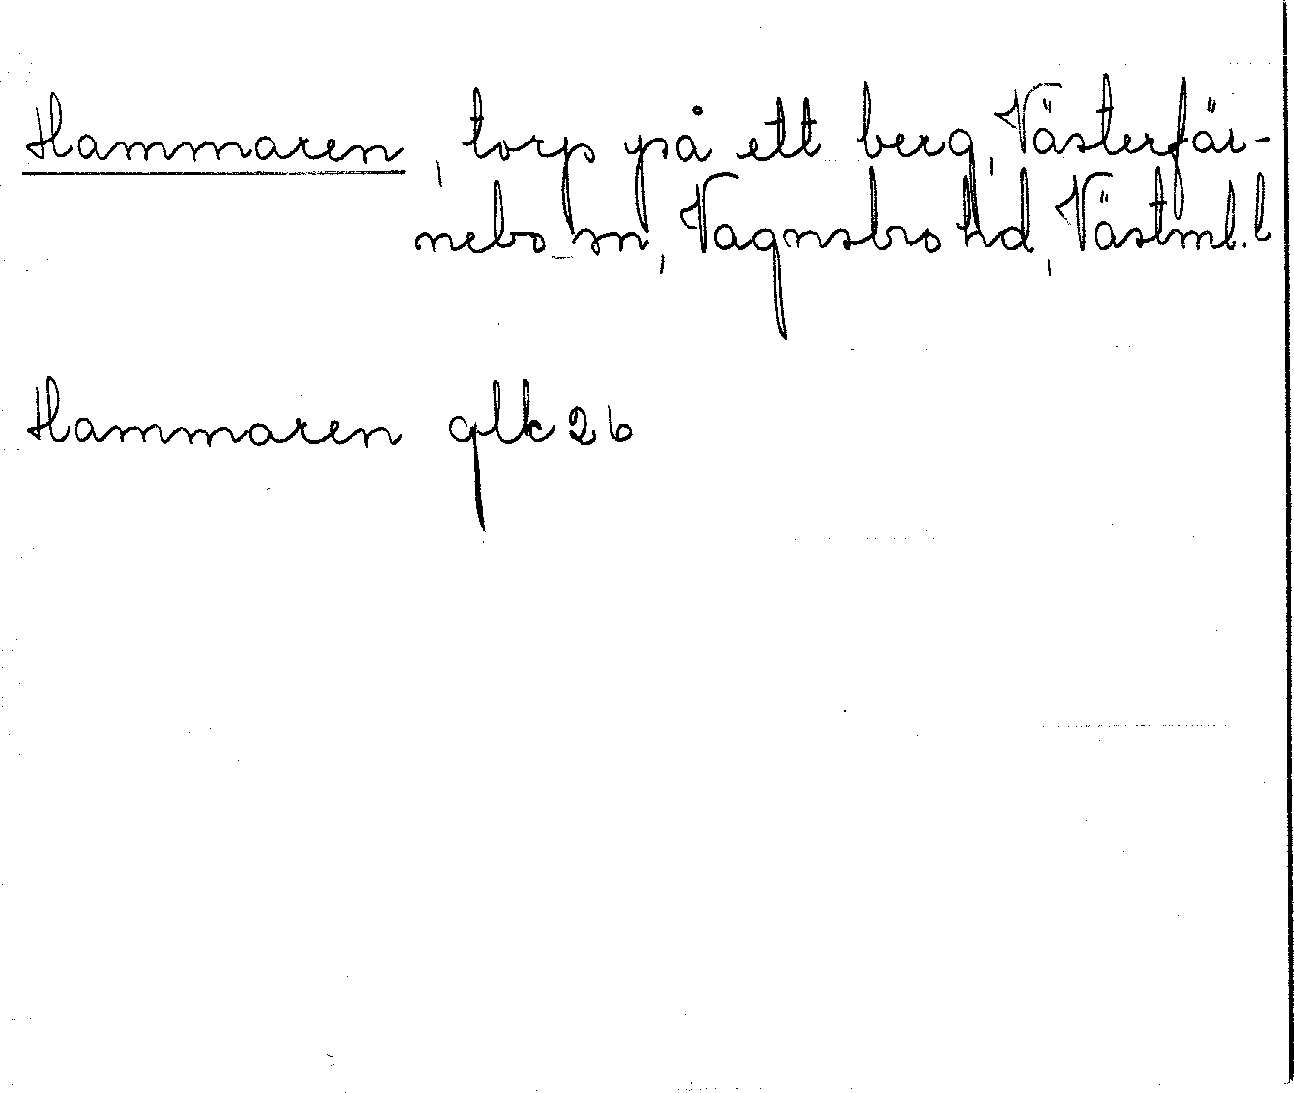 Hammaren, torp på ett berg, Västerfär-
nebo sn, Vagnsbro hd, Västml. l
Hammaren glk 26